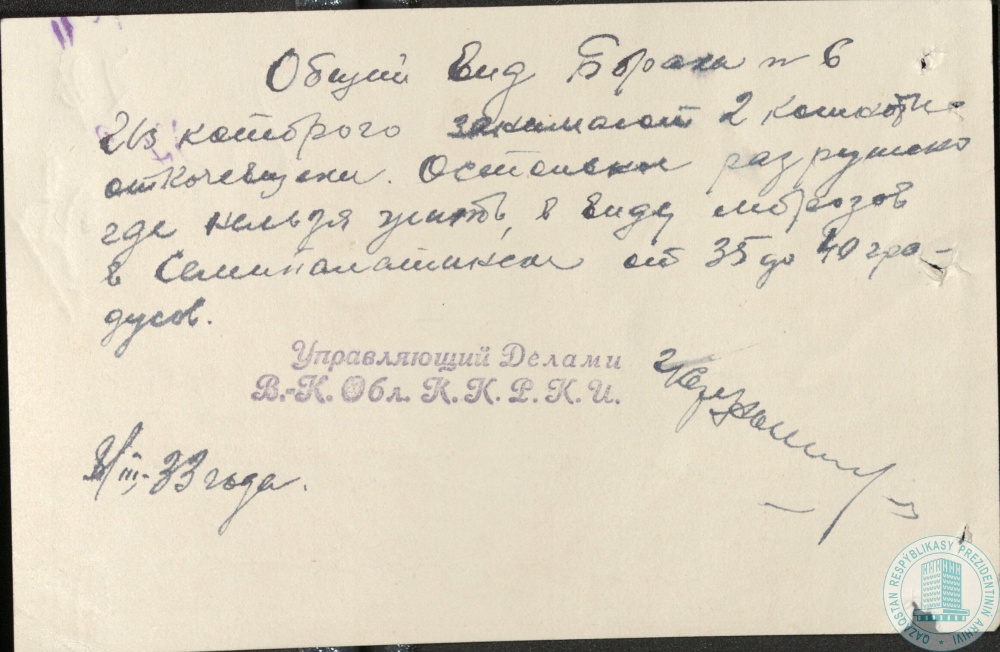 Общий вид Барака № 6
из которого занимают 2 комнаты
откочевщени. Остальное разрушено
где нельзя жить, в виду морозов
в Семипалатинске от 35 до 40 гра-
дусов.
Управляющий Делами
В.-К. Обл. К. К. Р. К. И.
/III-33 года.
QAZAQSTAN RESPÝBLIKASY PREZIDENTINIŃ ARHIVI